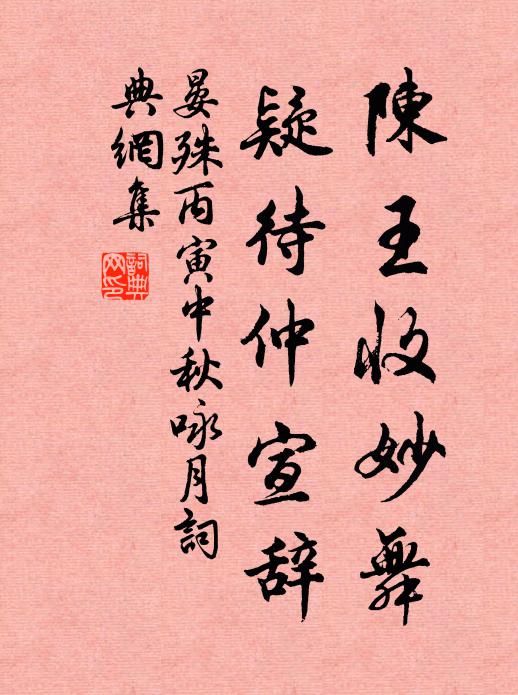 陳王收妙舞
疑待仲宣辞
晏殊丙寅中秋咏月詞
典網集
詞典
网印